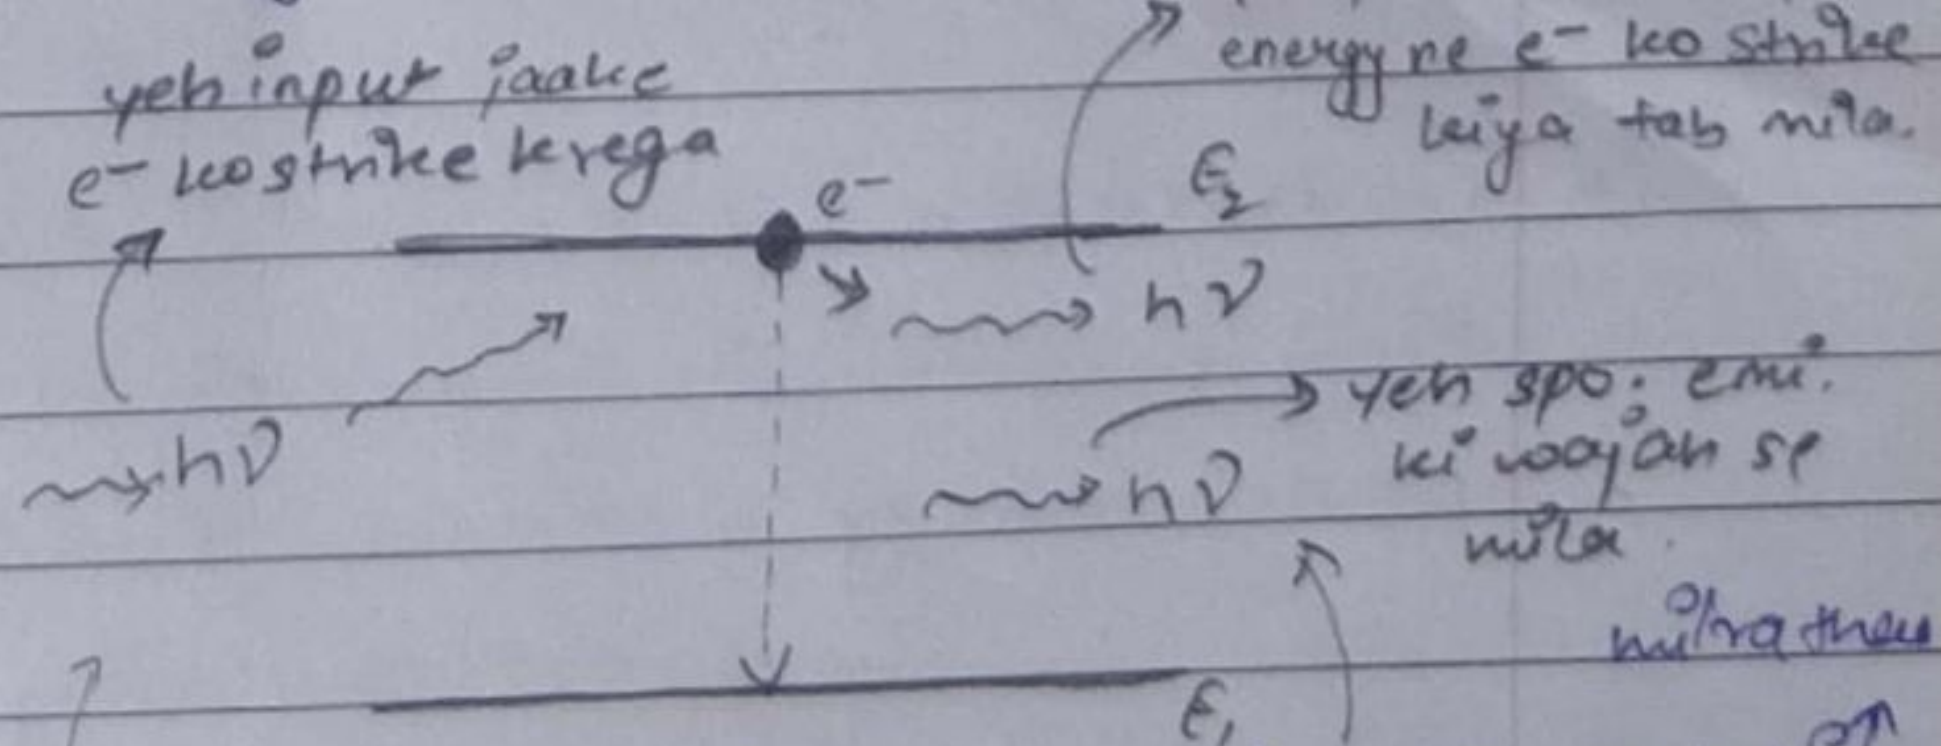 yeh input jaake
e⁻ ko strike krega
energy ne e⁻ ko strike
kiya tab mila.
e⁻
E₂
hν
hν
yeh spo. emi.
ki wajah se
mila.
hν
E₁